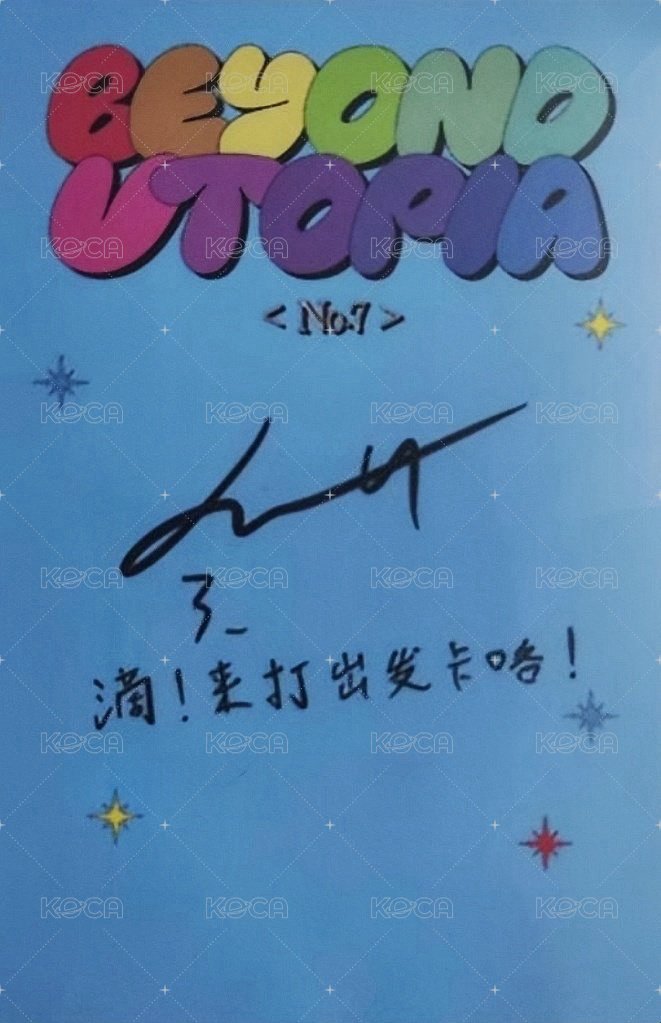 BEYOND
KOCA KOCA KOCA KOCA
UTOPIA
KOCA KOCA KOCA KOCA
< No.7 >
KOCA KOCA KOCA KOCA
KOCA KOCA KOCA KOCA
滴！来打出发卡咯！
KOCA KOCA KOCA KOCA
KOCA KOCA KOCA KOCA